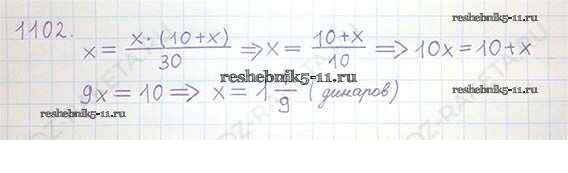 1102.
x = x·(10+x)/30 ⇒ x = 10+x/10 ⇒ 10x = 10+x
reshebnik5-11.ru
9x = 10 ⇒ x = 1 1/9 (динаров)
reshebnik5-11.ru
reshebnik5-11.ru